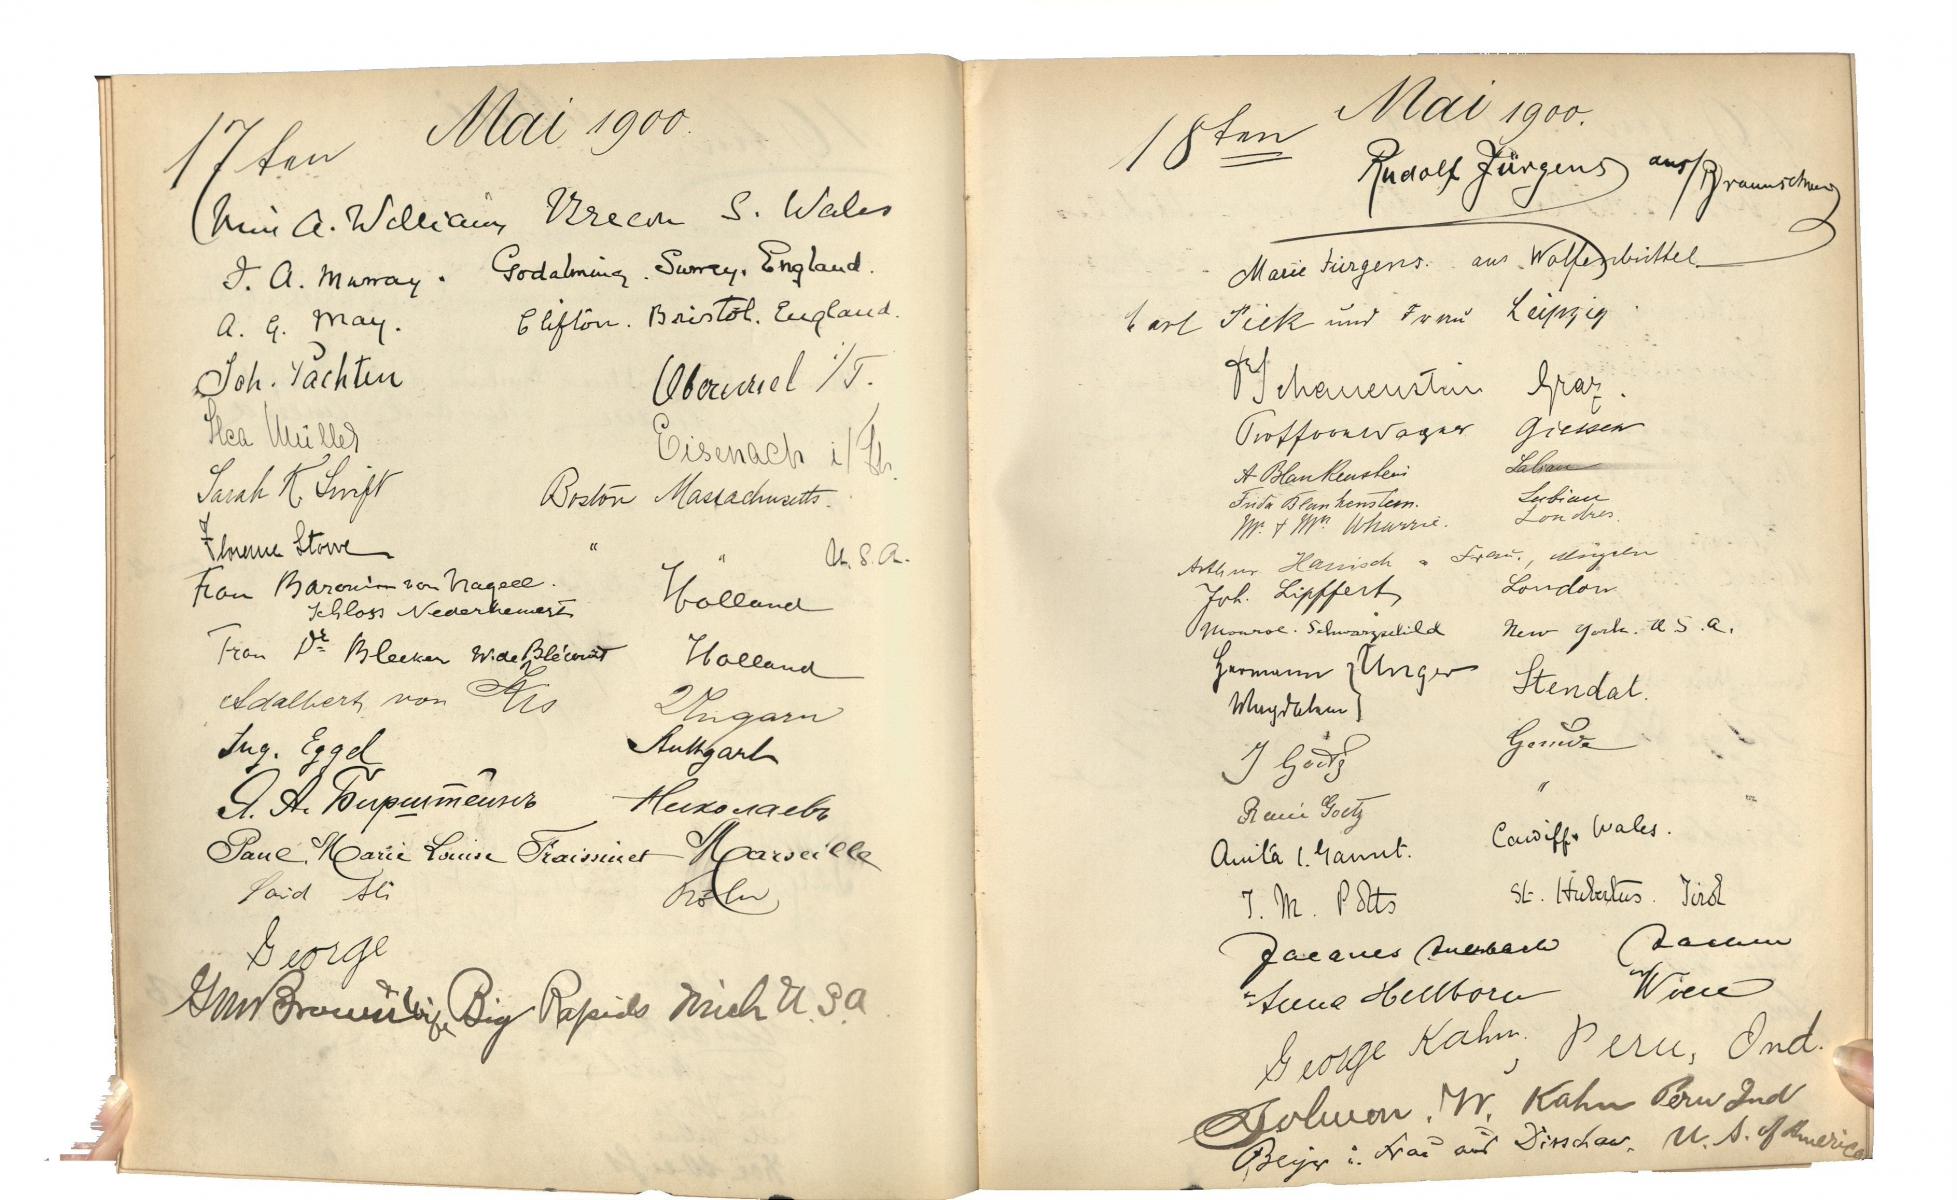 Mai 1900.
17 ten
A. Williams Brecon S. Wales
J. A. Murray. Godalming. Surrey. England.
A. G. May. Clifton. Bristol. England.
Joh. Pachten Oberursel i/T.
Müller Eisenach i/Th.
Sarah K. Swift Boston Massachusetts.
Florence Stowe " " U. S. A.
Frau Baronin von Nagell.
Schloss Nederhemert Holland
Frau Dr Bleeker W. de Blécourt Holland
Adalbert von Kis Ungarn
Ing. Eggel Stuttgart
Я. А. Бирштейнъ Николаевъ
Paul, Marie Louise Fraissinet Marseille
Said Ali Köln
George
Big Rapids Mich U. S. A
Mai 1900.
18 ten
Rudolf Jürgens aus Braunschweig
Marie Jürgens. aus Wolfenbüttel
Carl Pick und Frau Leipzig
Schauenstein Graz.
Wagner Giessen
A Blankenstein
Frida Blankenstein. Labiau
Mr. & Mrs Wharrie. Londres.
Arthur Hanisch u Frau, Mügeln
Joh. Lipffert London
Monroe. Schwarzschild New York. U S. A.
Hermann } Unger Stendal.
Magdalena }
J Goetz Genève
René Goetz "
Anita L. Gamut. Cardiff. Wales.
J. M. Potts St. Hubertus. Tirol
Jacques Auerbach Aachen
Anna Hellborn Wien
George Kahn, Peru, Ind.
Solomon. W. Kahn Peru Ind
U. S. of America
Beyer u. Frau aus Dirschau.